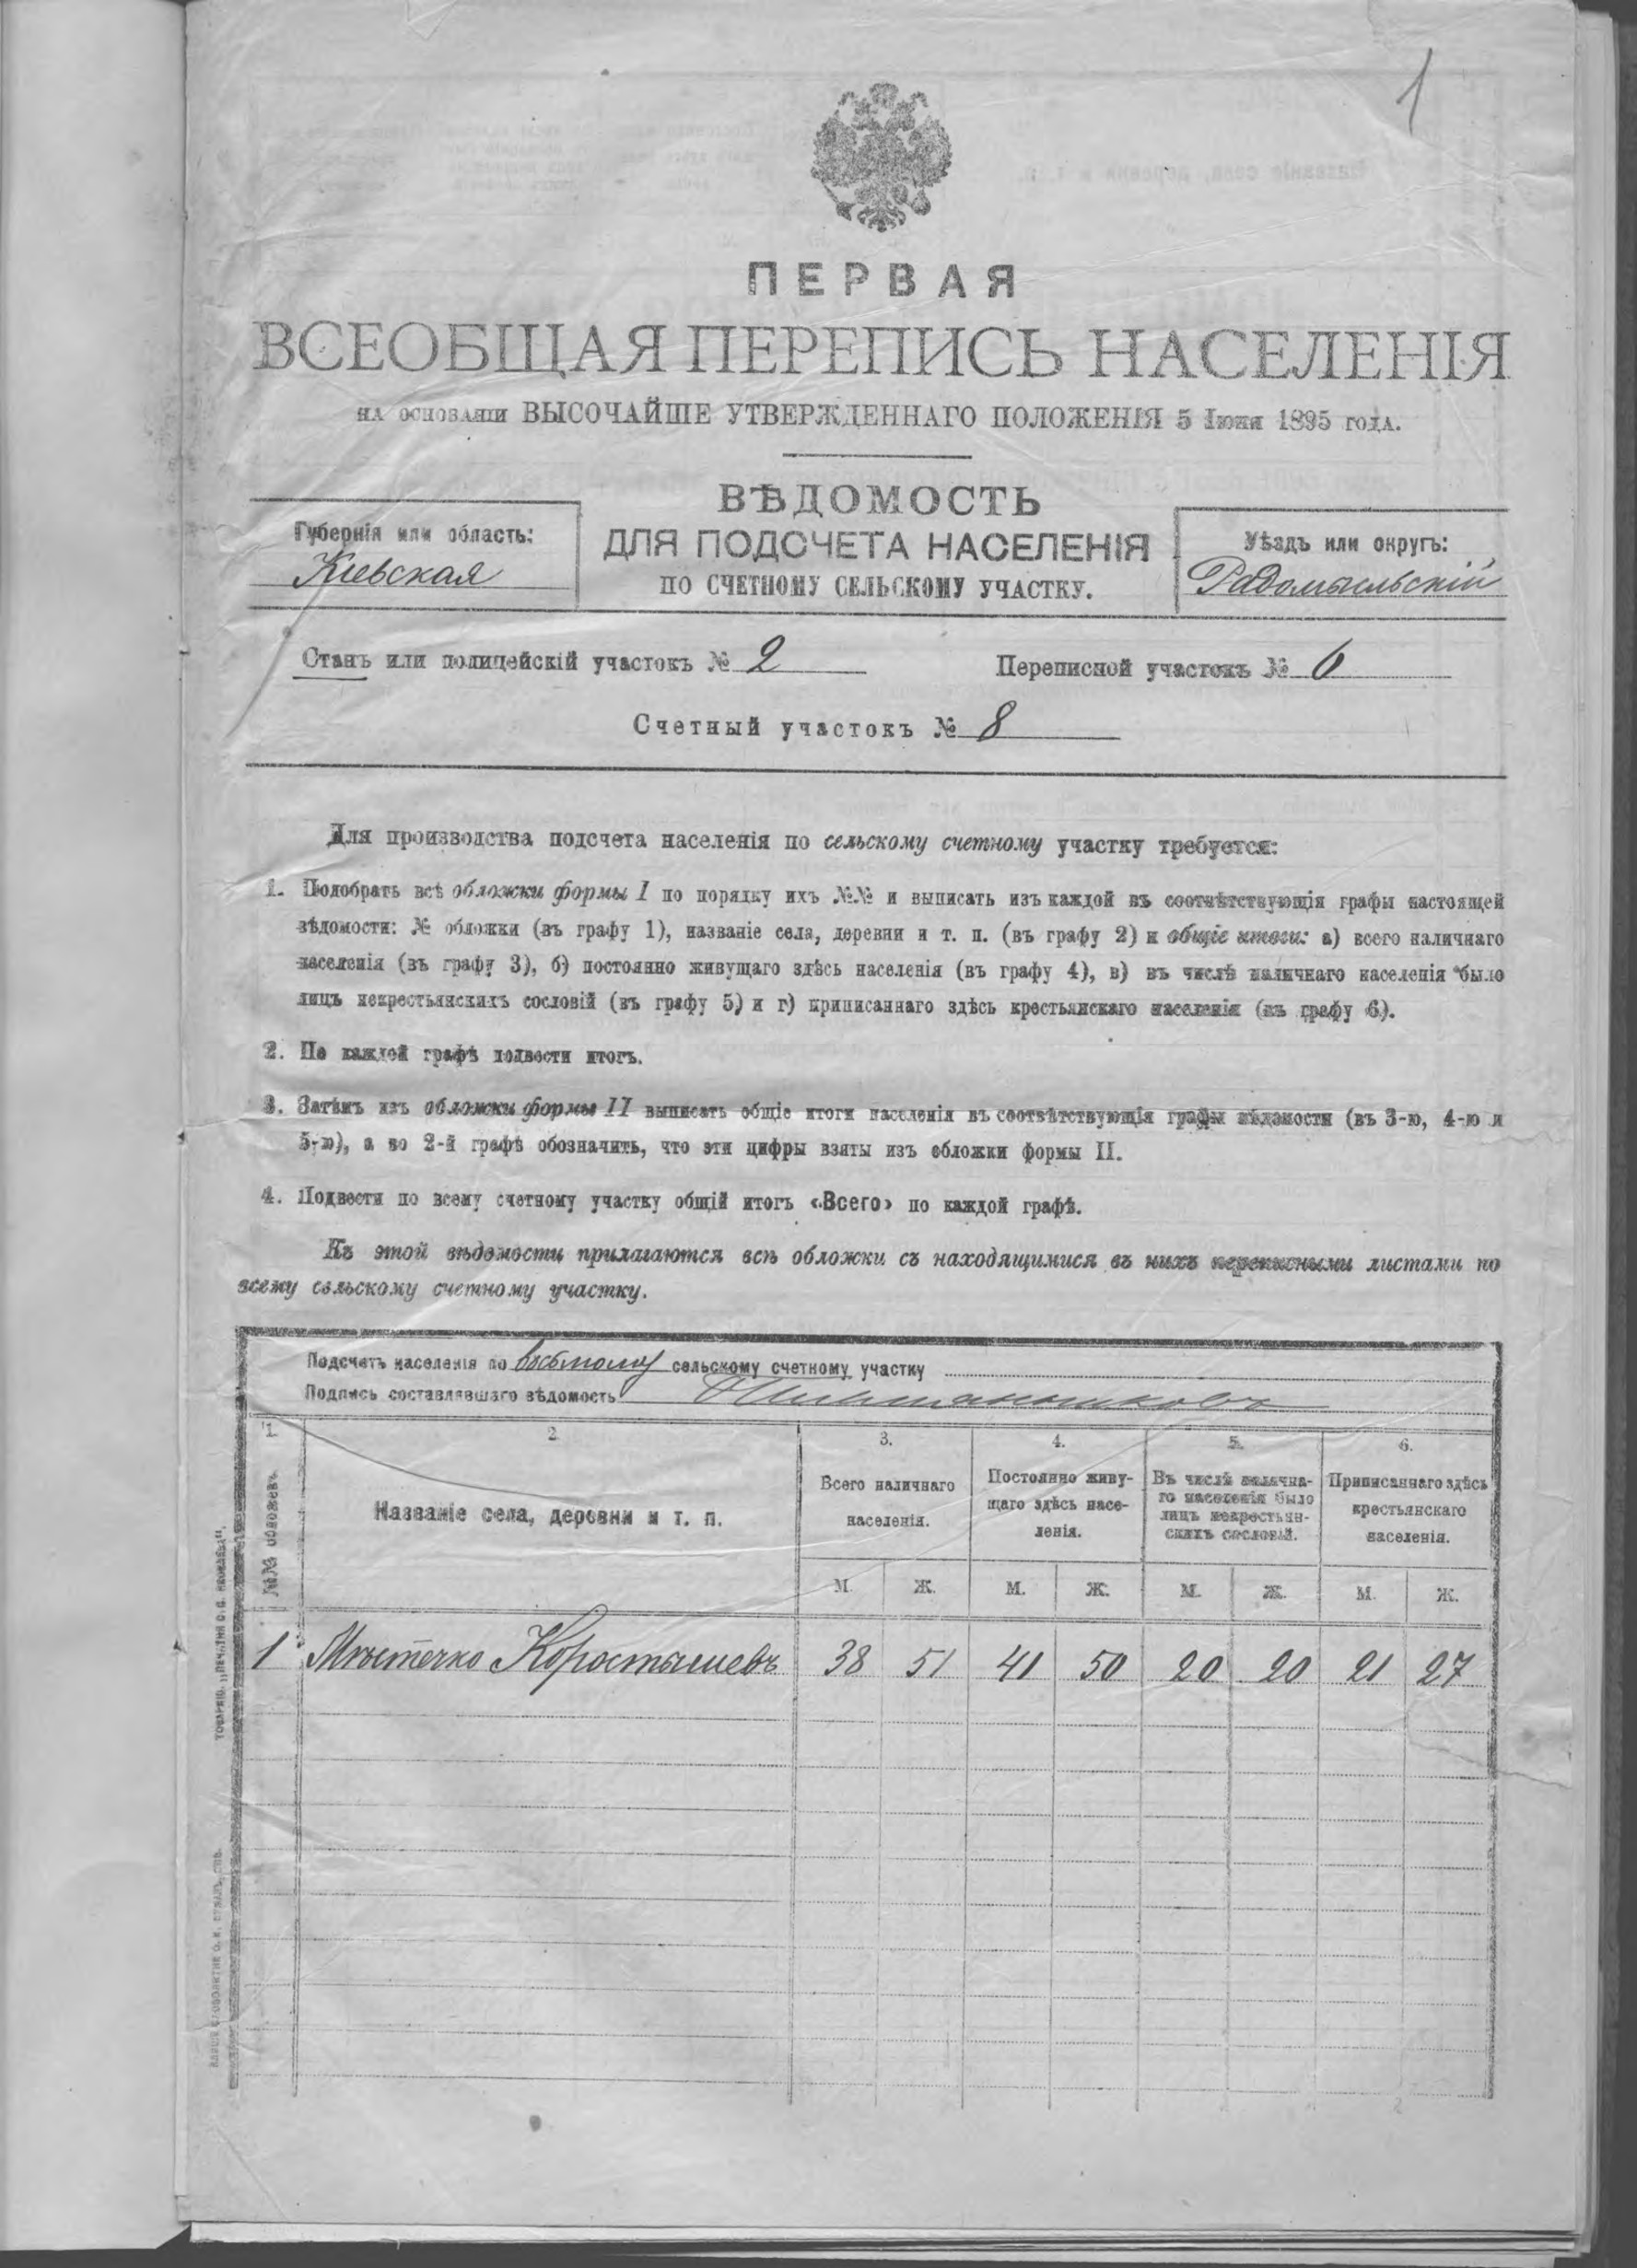 1
ПЕРВАЯ
ВСЕОБЩАЯ ПЕРЕПИСЬ НАСЕЛЕНІЯ
НА ОСНОВАНІИ ВЫСОЧАЙШЕ УТВЕРЖДЕННАГО ПОЛОЖЕНІЯ 5 Іюня 1895 ГОДА.
ВѢДОМОСТЬ
ДЛЯ ПОДСЧЕТА НАСЕЛЕНІЯ
ПО СЧЕТНОМУ СЕЛЬСКОМУ УЧАСТКУ.
Губернія или область:
Кіевская
Уѣздъ или округъ:
Радомысльскій
Станъ или полицейскій участокъ № 2
Переписной участокъ № 6
Счетный участокъ № 8
Для производства подсчета населенія по сельскому счетному участку требуется:
1. Подобрать всѣ обложки формы I по порядку ихъ №№ и выписать изъ каждой въ соотвѣтствующія графы настоящей
вѣдомости: № обложки (въ графу 1), названіе села, деревни и т. п. (въ графу 2) и общіе итоги: а) всего наличнаго
населенія (въ графу 3), б) постоянно живущаго здѣсь населенія (въ графу 4), в) въ числѣ наличнаго населенія было
лицъ некрестьянскихъ сословій (въ графу 5) и г) приписаннаго здѣсь крестьянскаго населенія (въ графу 6).
2. По каждой графѣ подвести итогъ.
3. Затѣмъ изъ обложки формы II выписать общіе итоги населенія въ соотвѣтствующія графы вѣдомости (въ 3-ю, 4-ю и
5-ю), а во 2-й графѣ обозначить, что эти цифры взяты изъ обложки формы II.
4. Подвести по всему счетному участку общій итогъ «Всего» по каждой графѣ.
Къ этой вѣдомости прилагаются всѣ обложки съ находящимися въ нихъ переписными листами по
всему сельскому счетному участку.
Подсчетъ населенія по восьмому сельскому счетному участку
Подпись составлявшаго вѣдомость
1. 2 3. 4. 5. 6.
№№ обложекъ.
Названіе села, деревни и т. п.
Всего наличнаго
населенія.
Постоянно живу-
щаго здѣсь насе-
ленія.
Въ числѣ налична-
го населенія было
лицъ некрестьян-
скихъ сословій.
Приписаннаго здѣсь
крестьянскаго
населенія.
М. Ж. М. Ж. М. Ж. М. Ж.
1 Мѣстечко Коростышевъ 38 51 41 50 20 20 21 27